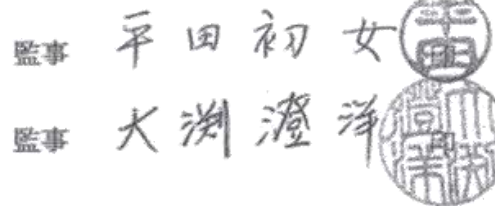 監事 平田初女 印
監事 大渕澄洋 印